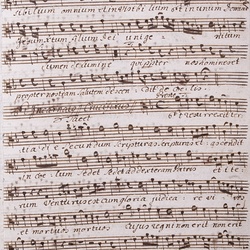 sibilium omnium et invisibilium et in unum Domin
genitum filium Dei unige nitum
lumen de lumine qui propter nos homines et
propter nostram salutem descen dit de coelis
Crucifixus
tacet et resurrexit ter
tia die secundum scripturas scripturas et ascendit
in coelum sedet ad dexteram Patris et ite
rum venturus est cum gloria judica re vi vos
et mortuos mortuos Cujus regni non erit non erit